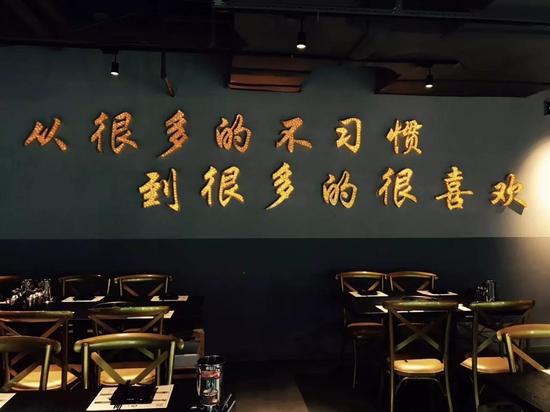 从很多的不习惯
到很多的很喜欢